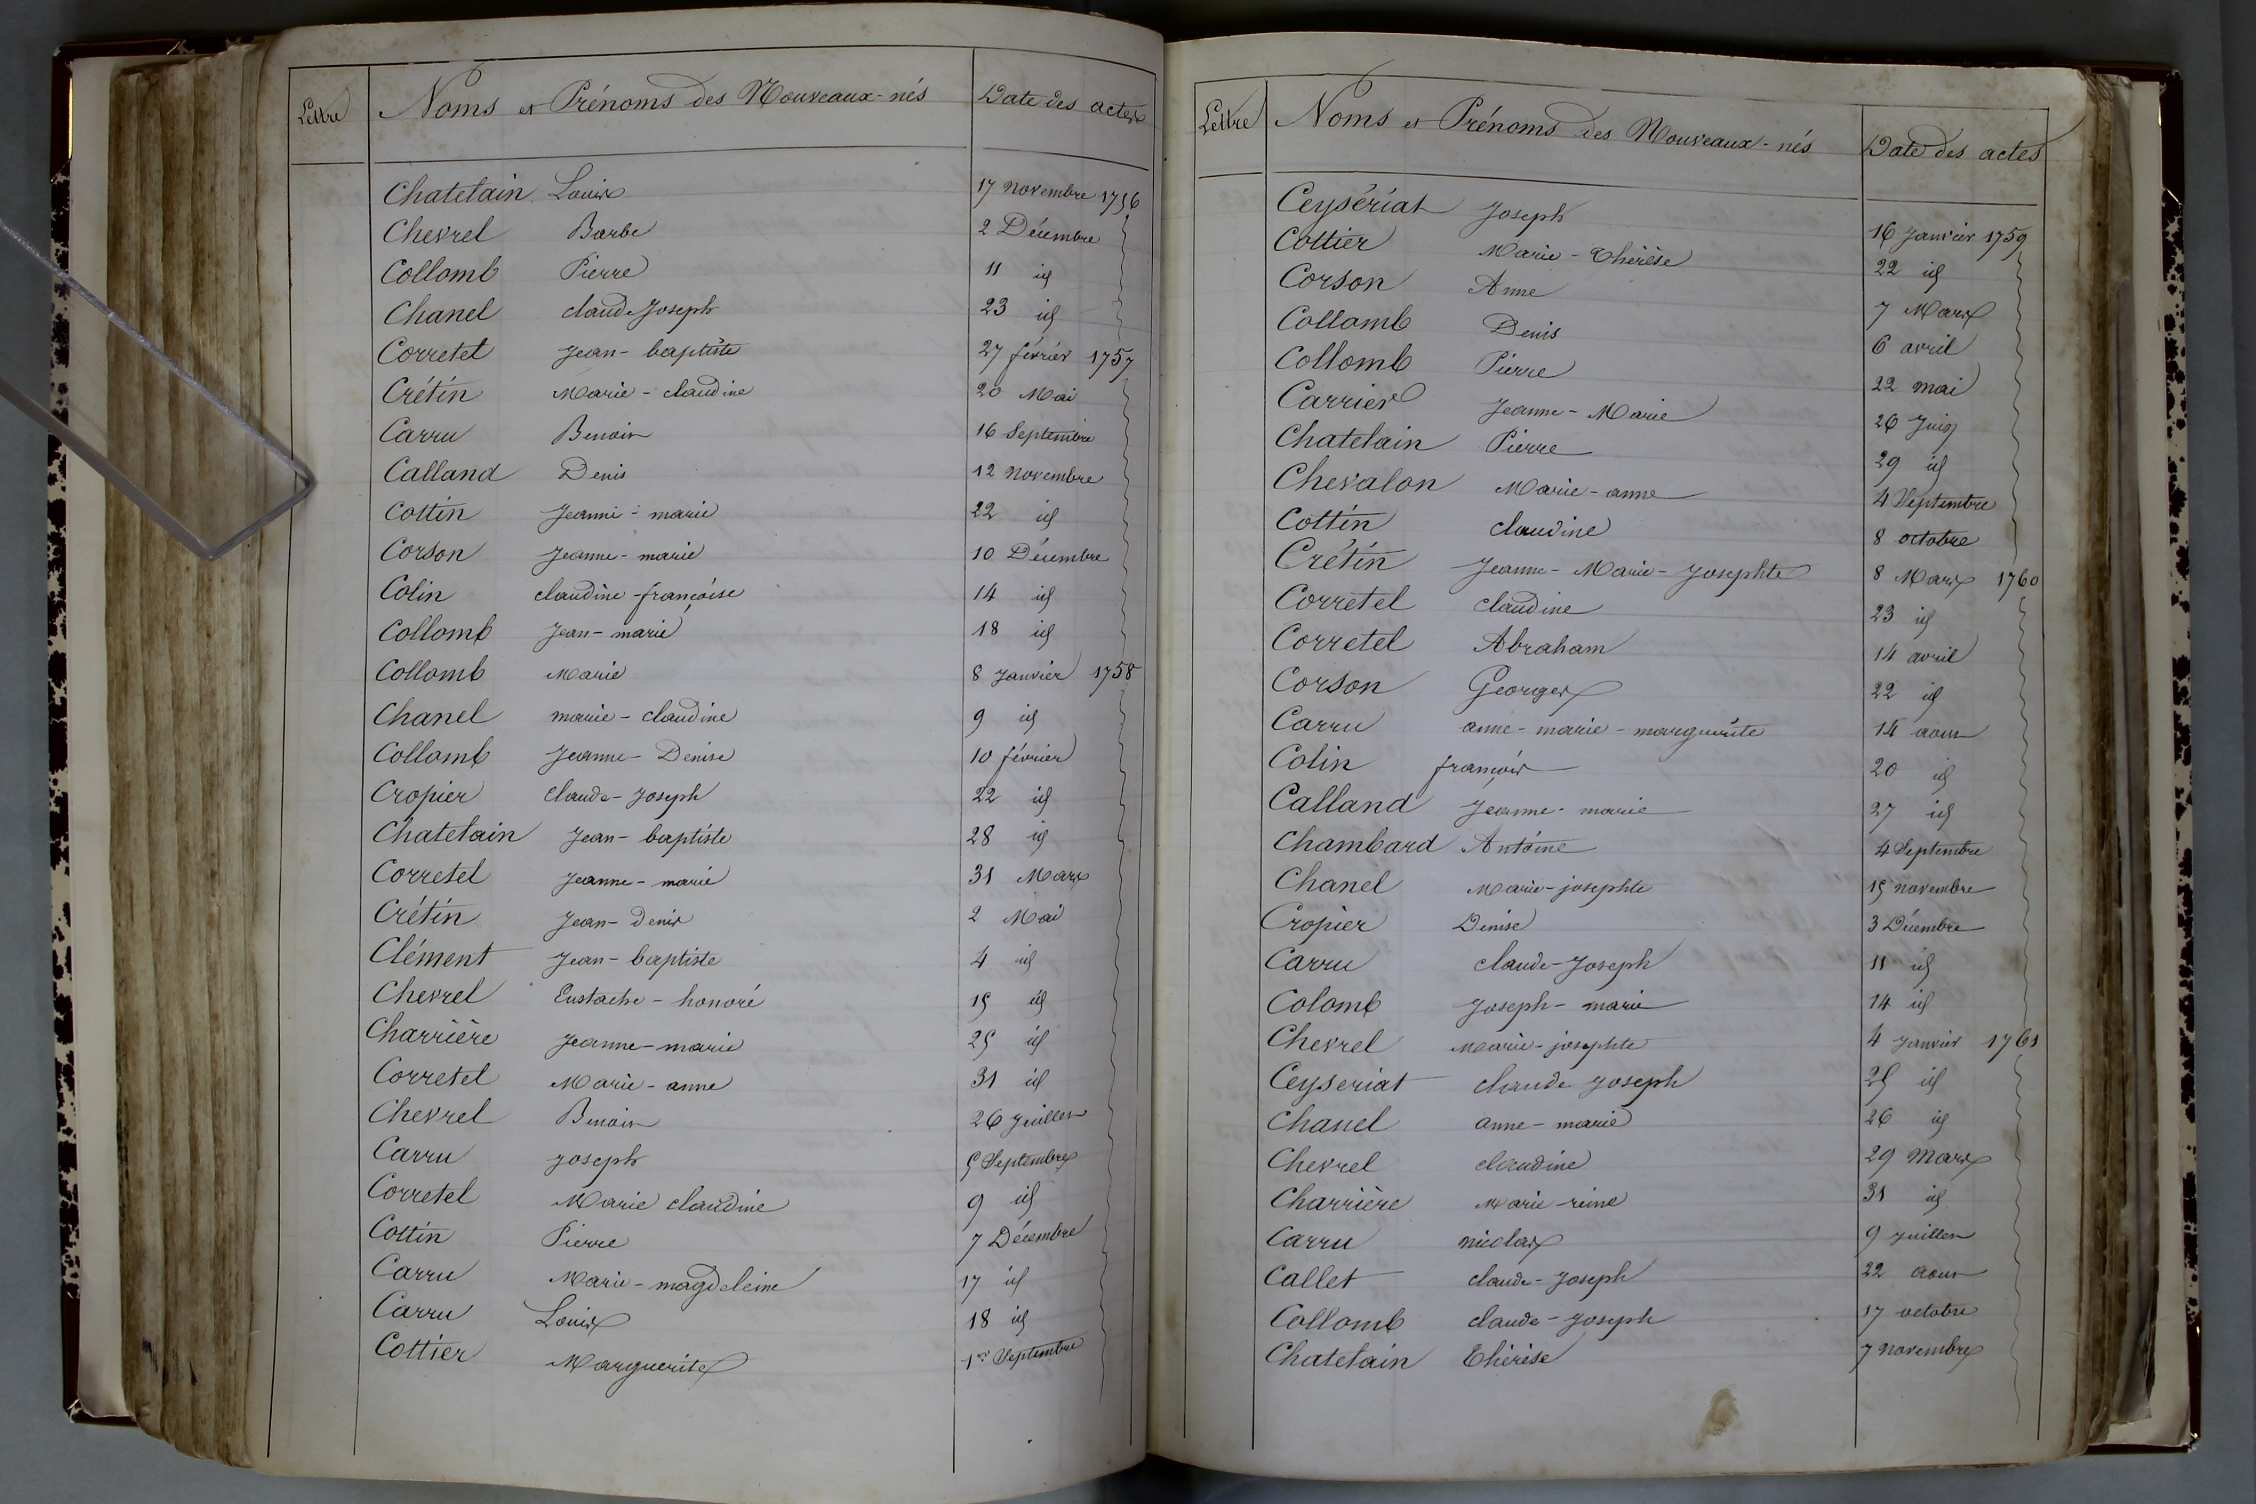 Lettre Noms et Prénoms des Nouveaux-nés Date des actes
Chatelain Louis 17 novembre 1756
Chevrel Barbe 2 Décembre
Collomb Pierre 11 id
Chanel claude Joseph 23 id
Corretel Jean-baptiste 27 février 1757
Crétin Marie-claudine 20 Mai
Carru Benoit 16 Septembre
Calland Denis 12 Novembre
Cottin Jeanne-marie 22 id
Corson Jeanne-marie 10 Décembre
Colin claudine-françoise 14 id
Collomb Jean-marie 18 id
Collomb Marie 8 Janvier 1758
Chanel marie-claudine 9 id
Collomb Jeanne-Denise 10 février
Cropier Claude-Joseph 22 id
Chatelain Jean-baptiste 28 id
Corretel Jeanne-marie 31 Mars
Crétin Jean-denis 2 Mai
Clément Jean-baptiste 4 id
Chevrel Eustache-honoré 15 id
Charrière Jeanne-marie 25 id
Corretel Marie-anne 31 id
Chevrel Benoit 26 Juillet
Carru Joseph 5 Septembre
Corretel Marie claudine 9 id
Cottin Pierre 7 Décembre
Carru Marie-magdeleine 17 id
Carru Louis 18 id
Cottier Marguerite 1er Septembre
Lettre Noms et Prénoms des Nouveaux-nés Date des actes
Ceysériat Joseph 16 Janvier 1759
Cottier Marie-Thérèse 22 id
Corson Anne 7 Mars
Collomb Denis 6 avril
Collomb Pierre 22 mai
Carrier Jeanne-Marie 26 Juin
Chatelain Pierre 29 id
Chevalon Marie-anne 4 Septembre
Cottin claudine 8 octobre
Crétin Jeanne-Marie-Josephte 8 Mars 1760
Corretel claudine 23 id
Corretel Abraham 14 avril
Corson Georges 22 id
Carru anne-marie-marguerite 14 aout
Colin françois 20 id
Calland Jeanne-marie 27 id
Chambard Antoine 4 Septembre
Chanel Marie-josephte 15 novembre
Cropier Denise 3 Décembre
Carru claude-Joseph 11 id
Colomb Joseph-marie 14 id
Chevrel Marie-josephte 4 Janvier 1761
Ceyseriat claude Joseph 25 id
Chanel anne-marie 26 id
Chevrel claudine 29 Mars
Charrière Marie-reine 31 id
Carru nicolas 9 Juillet
Callet claude-Joseph 22 aout
Collomb claude-Joseph 17 octobre
Chatelain Thérèse 7 novembre